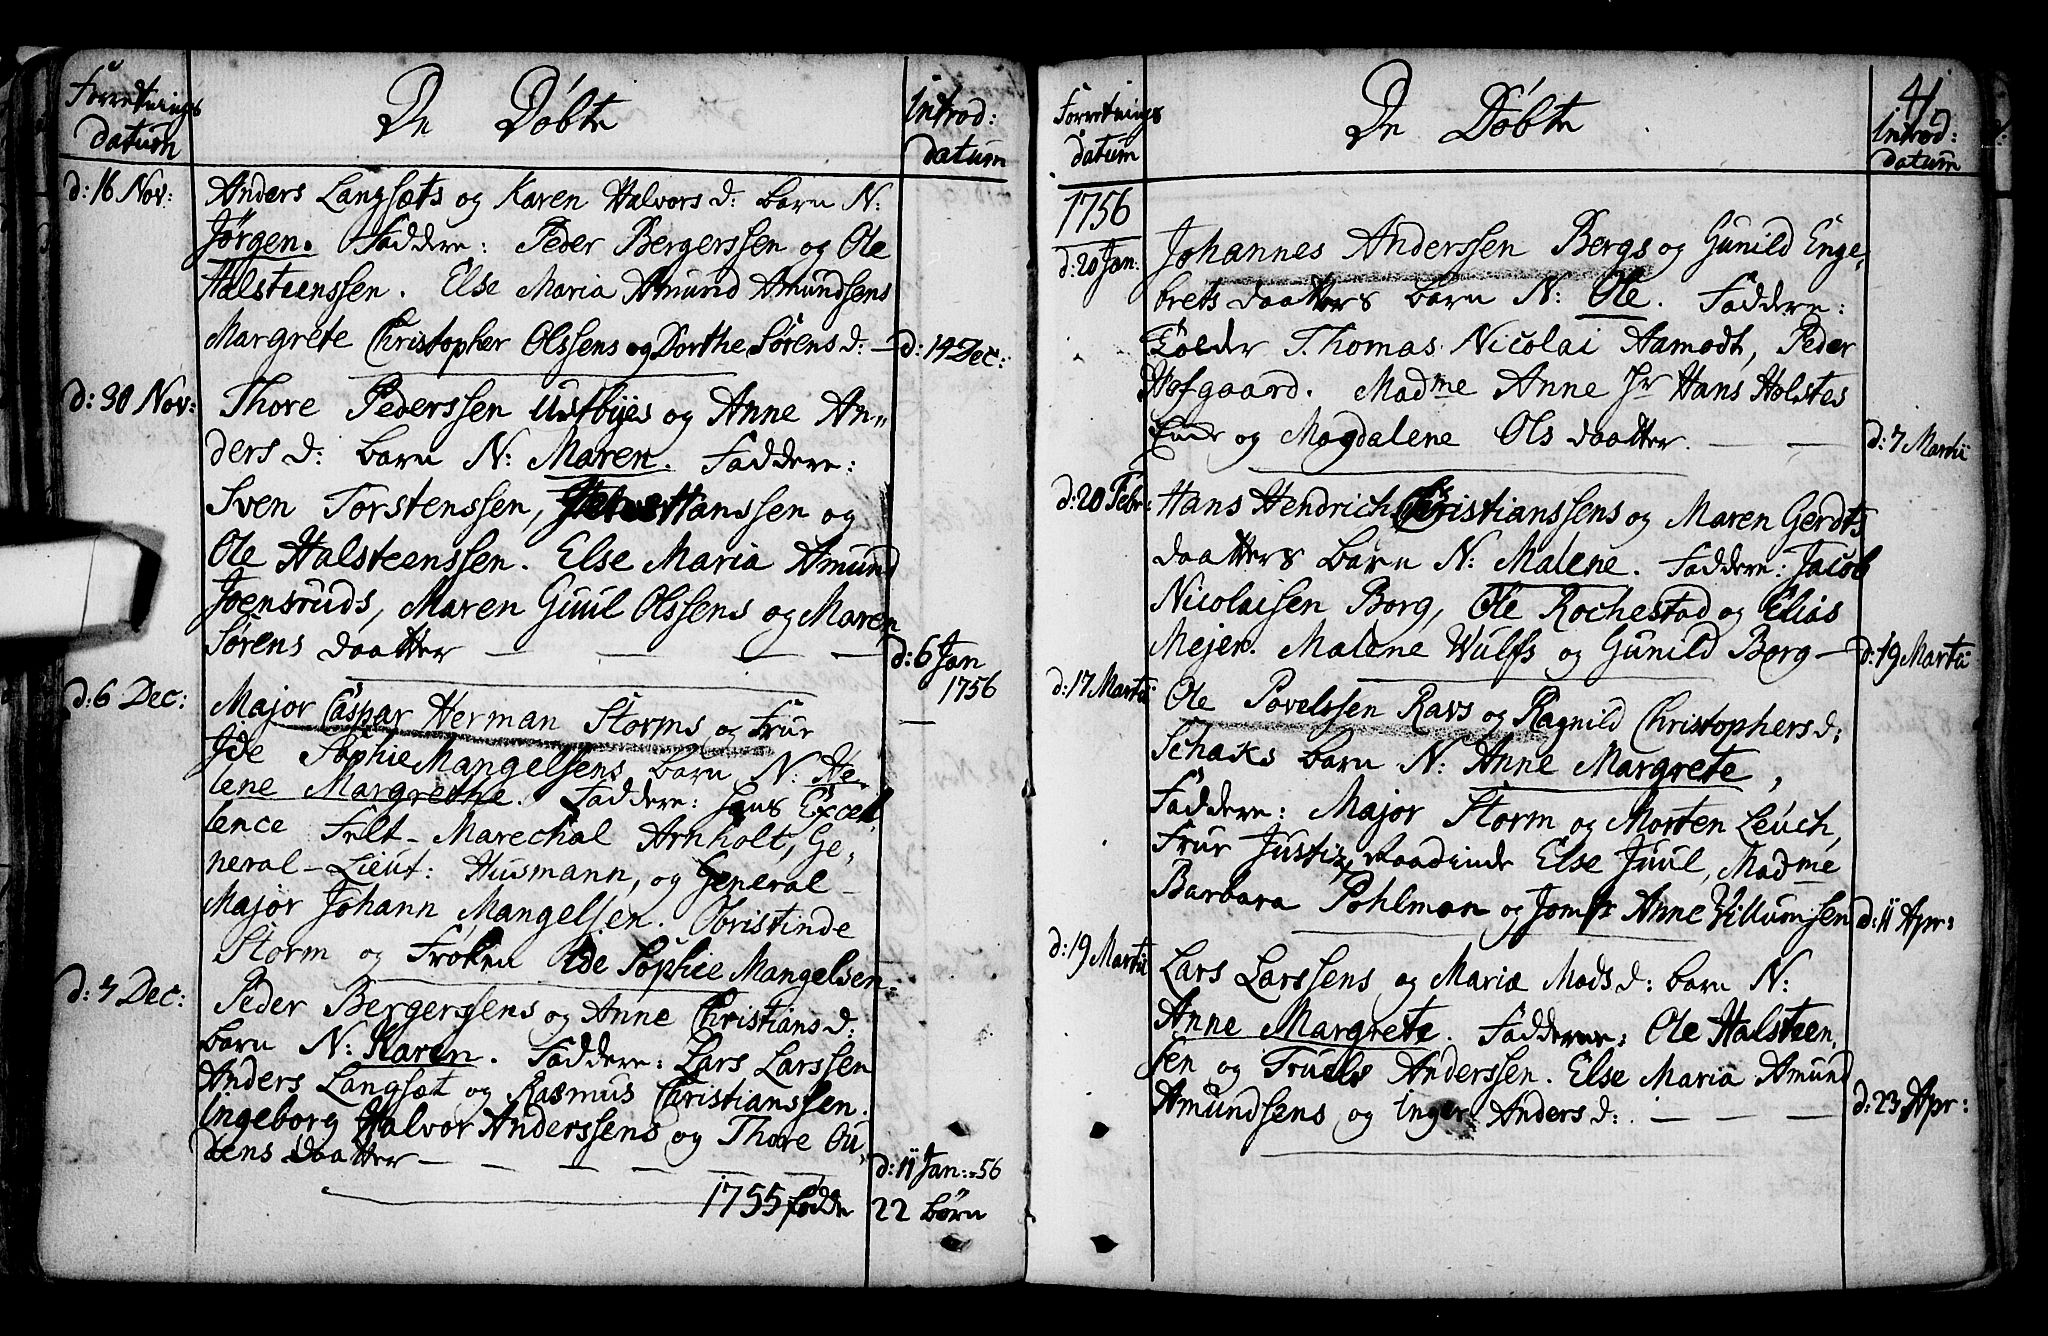 Forretnings
datum
De Döbte
Introd:
datum
d: 16 Nov:
Anders Langsæts og Karen Halvors d: barn N:
Jörgen. Faddere: Peder Bergerssen og Ole
Halsteenssen. Else Maria Amund Amundsens
Margrete Christopher Olssens og Dorthe Sörens d: —
d: 14 Dec:
d: 30 Nov:
Thore Pederssen Ustbÿes og Anne An-
ders d: barn N: Maren. Faddere:
Sven Torstenssen, Hanssen og
Ole Halsteenssen. Else Maria Amund
Joensruds, Maren Guul Olssens og Maren
Sörens daatter — — — —
d: 6 Jan
1756
d: 6 Dec:
Major Caspar Herman Storms og Frue
Ide Sophie Mangelsens barn N: He-
lene Margrethe. Faddere: hans Excel-
lence Felt-Marechal Arnholt, Ge-
neral-Lieut: Husmann, og General-
Major Johann Mangelsen. Obristinde
Storm og Fröken Ide Sophie Mangelsen.
d: 7 Dec:
Peder Bergerssens og Anne Christians d:
barn N: Karen. Faddere: Lars Larssen
Anders Langsæt og Rasmus Christianssen.
Ingeborg Halvor Anderssens og Thore Ou-
dens daatter — — — — — —
d: 11 Jan: -56
1755 födde 22 börn
Forretnings
datum
De Döbte
41
Introd:
datum
1756
d: 20 Jan:
Johannes Anderssen Bergs og Gunild Enge-
brets daatters barn N: Ole. Faddere:
Tolder Thomas Nicolai Aamodt, Peder
Hofgaard. Madme Anne Sr Hans Holstes
og Magdalene Ols daatter — —
d: 7 Martii
d: 20 Febr:
Hans Hendrich Christianssens og Maren Gerdts
daatters barn N: Malene. Faddere: Jacob
Nicolaisen Borg, Ole Rochestad og Elias
Mejer. Malene Wulfs og Gunild Borg —
d: 19 Martii
d: 17 Martii
Ole Povelssen Ravs og Ragnild Christophers d:
Schaks barn N: Anne Margrete,
Faddere: Major Storm og Morten Leuch,
Frue Justiz Raadinde Else Juul, Madme
Barbara Pohlman og Jomfr Anne Villumsen
d: 11 Apr:
d: 19 Martii
Lars Larssens og Mariæ Mads d: barn N:
Anne Margrete. Faddere: Ole Halsteen-
sen og Truels Anderssen. Else Maria Amund
Amundsens og Inger Anders d: — — —
d: 23 Apr: